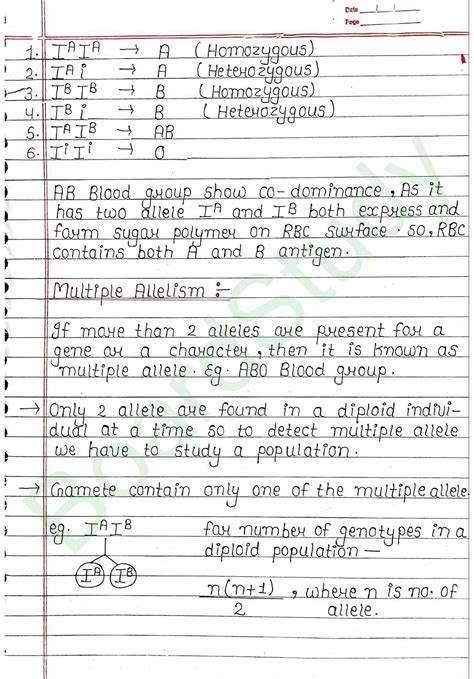 Date
Page
1. IᴬIᴬ → A (Homozygous)
2. Iᴬi → A (Heterozygous)
3. IᴮIᴮ → B (Homozygous)
4. Iᴮi → B (Heterozygous)
5. IᴬIᴮ → AB
6. IⁱIⁱ → O
AB Blood group show co-dominance, As it
has two allele Iᴬ and Iᴮ both express and
form sugar polymer on RBC surface. so, RBC
contains both A and B antigen.
Multiple Allelism :-
If more than 2 alleles are present for a
gene or a character, then it is known as
multiple allele. Eg. ABO Blood group.
→ Only 2 allele are found in a diploid indivi-
dual at a time so to detect multiple allele
we have to study a population.
→ Gamete contain only one of the multiple allele.
eg. IᴬIᴮ
Iᴬ Iᴮ
for number of genotypes in a
diploid population —
n(n+1)/2, where n is no. of
allele.
BoardStudy